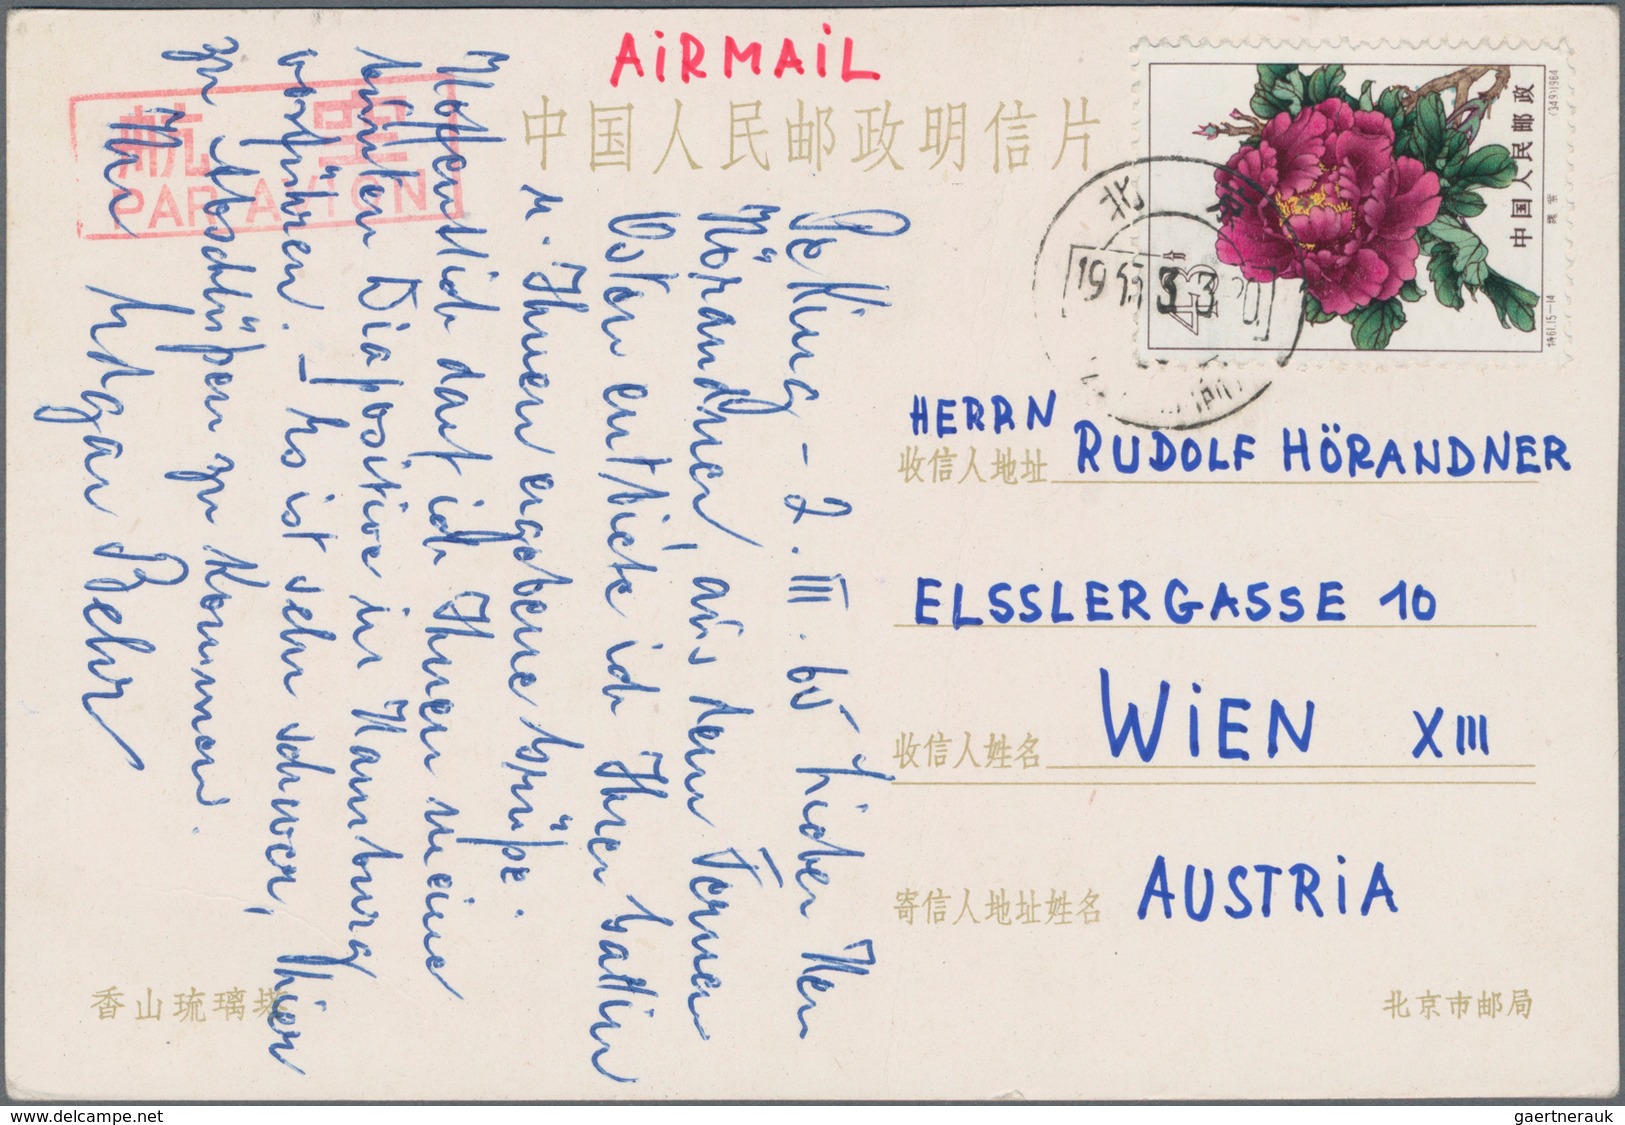 AiRMAiL
航空
PAR AVION
中国人民邮政明信片
中国人民邮政
(349)1964
特61.15-14
43
分
北京
1965.3.3.20
Peking - 2. III. 65 Lieber Herr
Hörandner, aus dem Fernen
Osten entbiete ich Ihrer Gattin
u. Ihnen ergebene Grüße.
Hoffentlich darf ich Ihnen meine
bunten Diapositive in Hamburg
vorführen. – Es ist sehr schwer, hier
zu Abschlüssen zu kommen.
Ihr Edgar Behr
HERRN
收信人地址 RUDOLF HÖRANDNER
ELSSLERGASSE 10
收信人姓名 WiEN XIII
寄信人地址姓名 AUSTRiA
香山琉璃塔
北京市邮局
www.delcampe.net
gaertnerauk